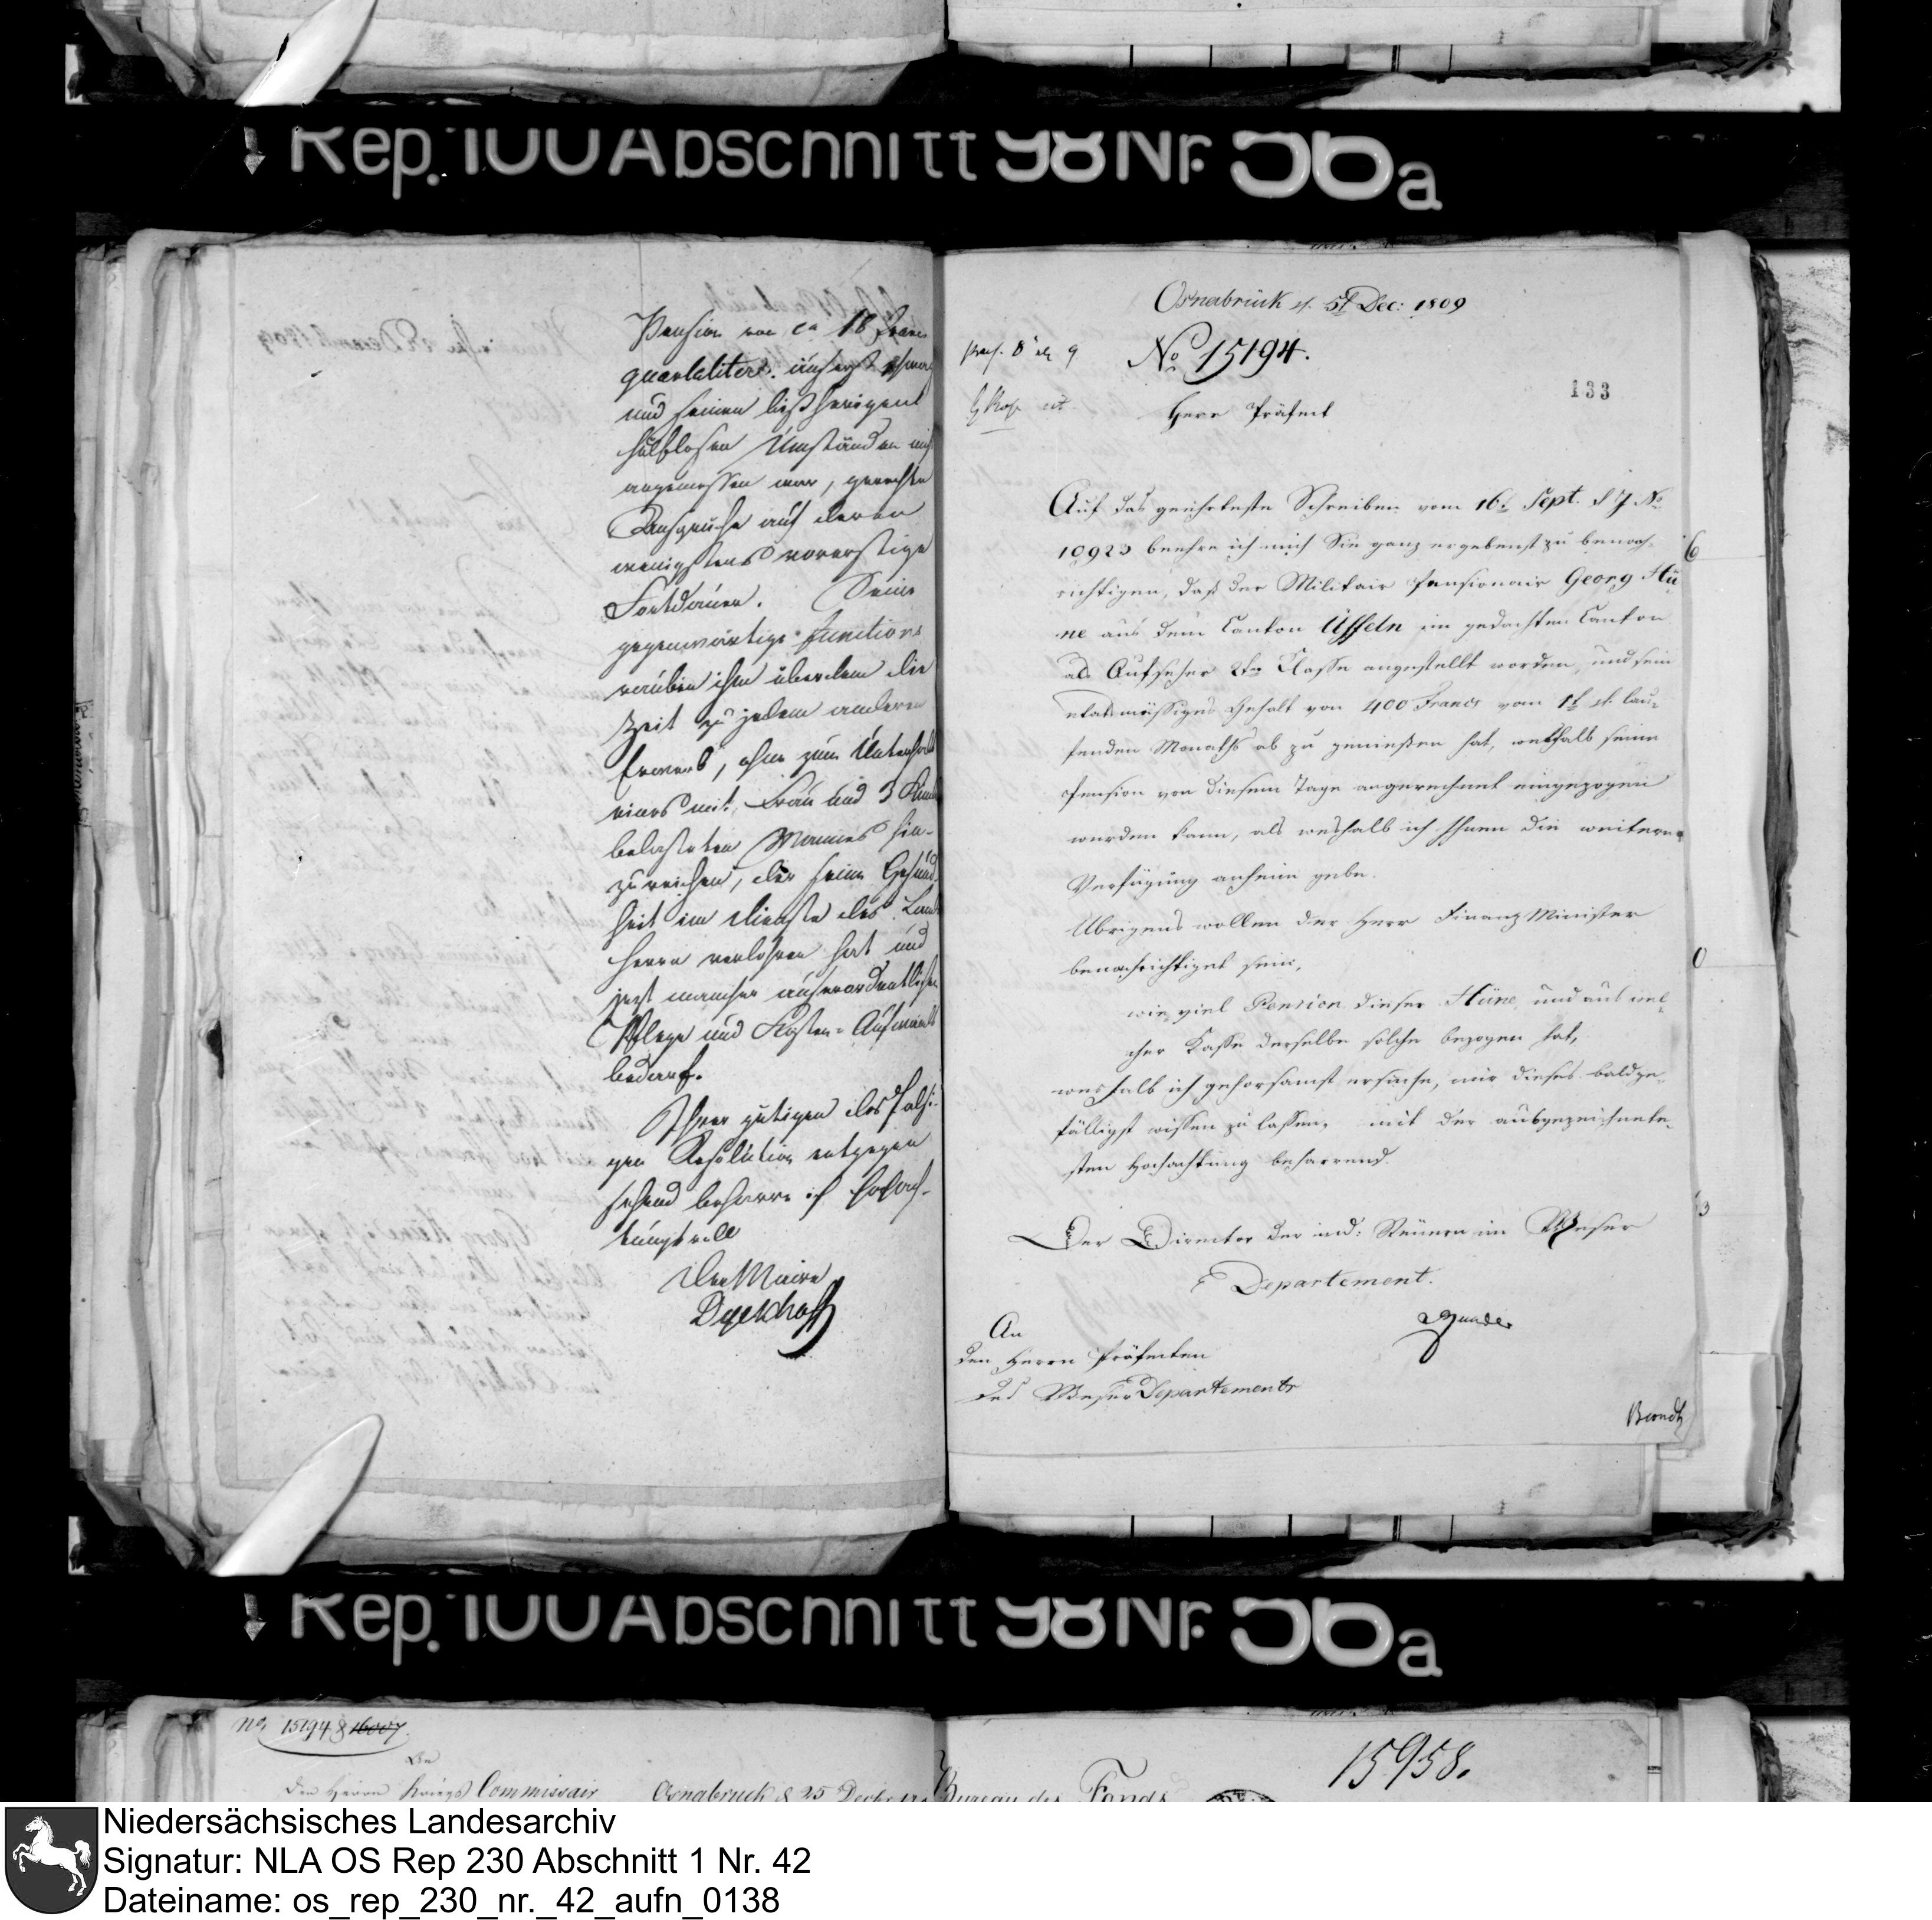 Rep. 100 Abschnitt 98 Nr. 56a
Pension von ca 18 Francs
quartaliter. äußerst schwach
und seinen bißherigen
hülflosen Umständen nicht
angemessen war, gerechte
Ansprüche auf deren
wenigstens vorerstige
Fortdauer. Seine
gegenwärtige Functions
rauben ihm überdem die
Zeit zu jedem anderen
Erwerb, ohne zum Unterhalt
eines mit Frau und 3 Kinder
belasteten Mannes hin-
zureichen, der seine Gesund-
heit im Dienste des Landes
herrn verlohren hat und
jetzt mancher außerordentlichen
Pflege und Kosten-Aufwands
bedarf.
Ihrer gütigen des falsi-
gen Resolution entgegen
sehend beharre ich hochach-
tungsvoll
Der Maire
Dyckhoff
Osnabrück d. 5t Dec: 1809
praes. 8 9
No 15194.
133
Herr Präfect
Auf das geehrteste Schreiben vom 16t Sept. d J No
10923 beehre ich mich Sie ganz ergebenst zu benach-
richtigen, daß der Militair Pensionair Georg Hü-
ne aus dem Canton Üffeln im gedachten Canton
als Aufseher 2ter Classe angestellt worden, und sein
etatsmässiges Gehalt von 400 Francs vom 1t d. lau-
fenden Monaths ab zu genießen hat, weshalb seine
Pension von diesem Tage angerechnet eingezogen
werden kann, als weshalb ich Ihnen die weitere
Verfügung anheim gebe.
Übrigens wollen der Herr Finanz Minister
benachrichtiget sein,
wie viel Pension dieser Hüne, und aus wel-
cher Casse derselbe solche bezogen hat,
weshalb ich gehorsamst ersuche, mir dieses baldge-
fälligst wissen zu lassen, mit der ausgezeichnete-
sten Hochachtung beharrend.
Der Director der ind: Steuern im Weser
Departement.
An
den Herrn Präfecten
des Weser Departements
6
0
3
Rep. 100 Abschnitt 98 Nr. 56a
No, 15194 & 16007
An
den Herrn Kriegs Commissair
Osnabrück d 25 Decbr
Bureau des Fonds
15958.
Niedersächsisches Landesarchiv
Signatur: NLA OS Rep 230 Abschnitt 1 Nr. 42
Dateiname: os_rep_230_nr._42_aufn_0138